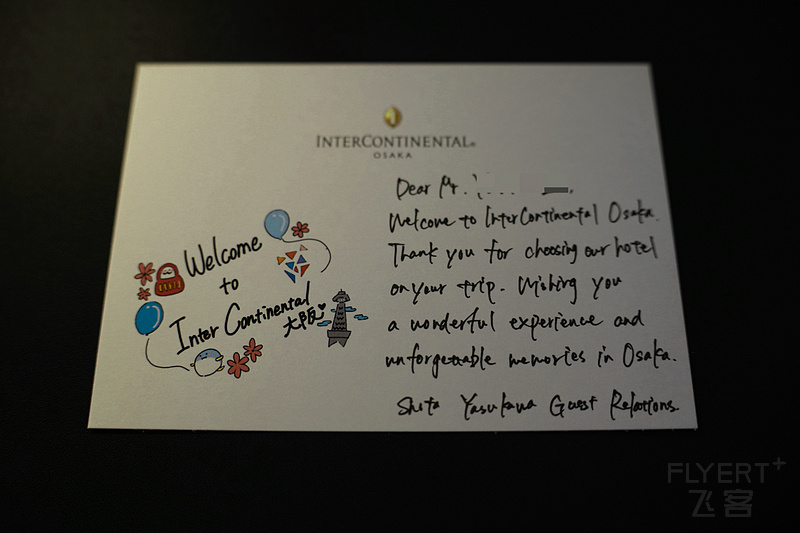 INTERCONTINENTAL®
OSAKA
Dear Mr.
Welcome to InterContinental Osaka.
Thank you for choosing our hotel
on your trip. Wishing you
a wonderful experience and
unforgetable memories in Osaka.
Shita Yasukawa Guest Relations.
Welcome
to
Inter Continental
大阪
FLYERT+
飞客